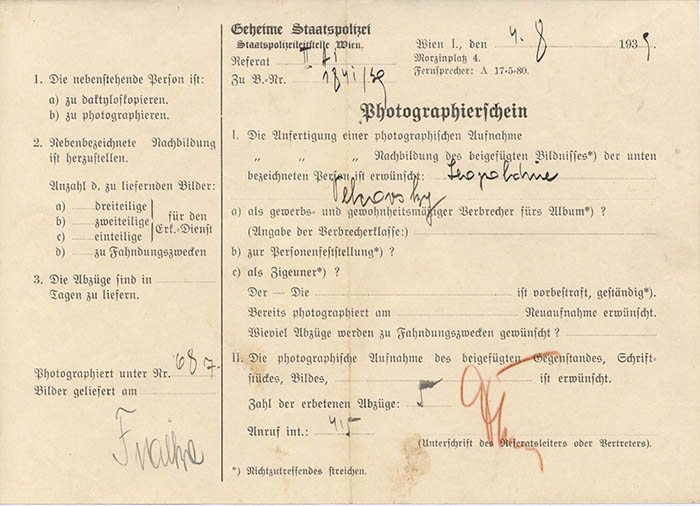 Geheime Staatspolizei
Staatspolizeileitstelle Wien.
Referat II
Zu B.-Nr. 1841/39
Wien I., den 4. 8 1939.
Morzinplatz 4.
Fernsprecher: A 17-5-80.
1. Die nebenstehende Person ist:
a) zu daktyloskopieren.
b) zu photographieren.
2. Nebenbezeichnete Nachbildung
ist herzustellen.
Anzahl d. zu liefernden Bilder:
a) dreiteilige
b) zweiteilige
c) einteilige
für den
Erk.-Dienst
d) zu Fahndungszwecken
3. Die Abzüge sind in
Tagen zu liefern.
Photographiert unter Nr. 687
Bilder geliefert am
Photographierschein
I. Die Anfertigung einer photographischen Aufnahme
„ „ „ Nachbildung des beigefügten Bildnisses*) der unten
bezeichneten Person ist erwünscht: Leopoldine
a) als gewerbs- und gewohnheitsmäßiger Verbrecher fürs Album*) ?
(Angabe der Verbrecherklasse:)
b) zur Personenfeststellung*) ?
c) als Zigeuner*) ?
Der — Die ist vorbestraft, geständig*).
Bereits photographiert am Neuaufnahme erwünscht.
Wieviel Abzüge werden zu Fahndungszwecken gewünscht ?
II. Die photographische Aufnahme des beigefügten Gegenstandes, Schrift-
stückes, Bildes, ist erwünscht.
Zahl der erbetenen Abzüge: 5
Anruf int.: 415
(Unterschrift des Referatsleiters oder Vertreters).
*) Nichtzutreffendes streichen.